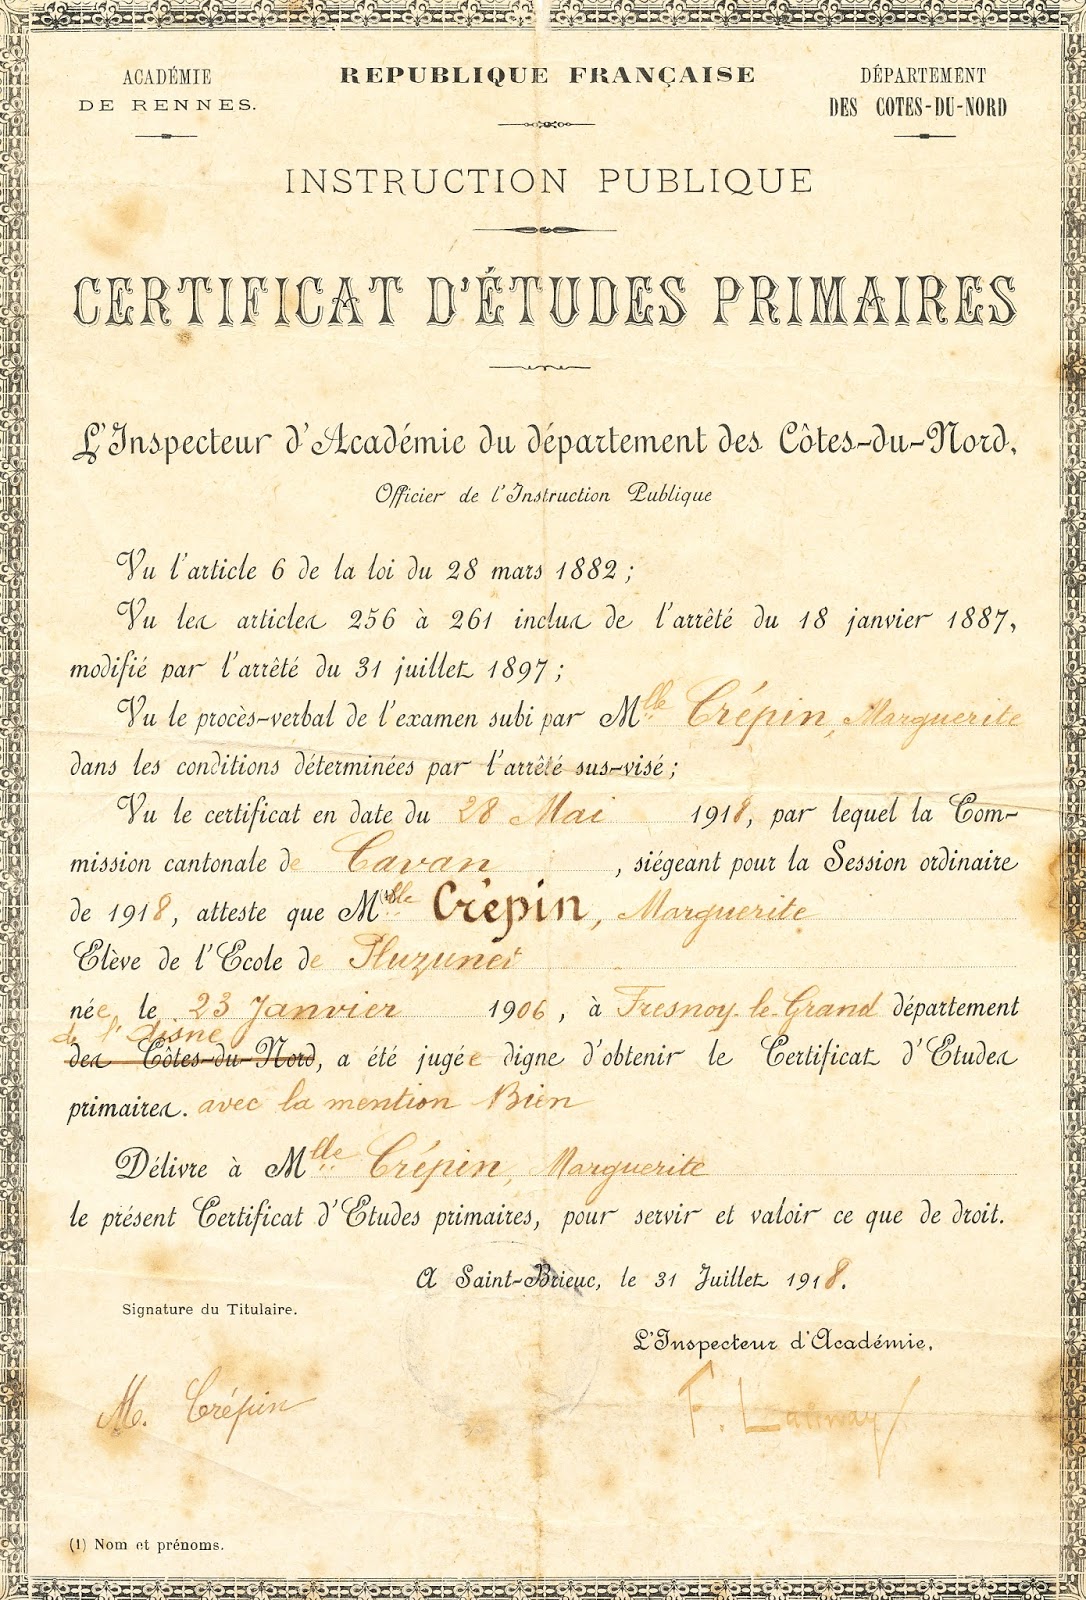 ACADÉMIE
DE RENNES.
REPUBLIQUE FRANÇAISE
DÉPARTEMENT
DES COTES-DU-NORD
INSTRUCTION PUBLIQUE
CERTIFICAT D'ÉTUDES PRIMAIRES
L'Inspecteur d'Académie du département des Côtes-du-Nord,
Officier de l'Instruction Publique
Vu l'article 6 de la loi du 28 mars 1882 ;
Vu les articles 256 à 261 inclus de l'arrêté du 18 janvier 1887,
modifié par l'arrêté du 31 juillet 1897 ;
Vu le procès-verbal de l'examen subi par Mlle Crépin, Marguerite
dans les conditions déterminées par l'arrêté sus-visé ;
Vu le certificat en date du 28 Mai 1918, par lequel la Com-
mission cantonale de Cavan, siégeant pour la Session ordinaire
de 1918, atteste que Mlle Crépin, Marguerite
Elève de l'Ecole de Pluzunet
née le 23 Janvier 1906, à Fresnoy-le-Grand département
de l'Aisne
des Côtes-du-Nord, a été jugée digne d'obtenir le Certificat d'Etudes
primaires. avec la mention Bien
Délivré à Mlle Crépin, Marguerite
le présent Certificat d'Etudes primaires, pour servir et valoir ce que de droit.
A Saint-Brieuc, le 31 Juillet 1918.
Signature du Titulaire.
L'Inspecteur d'Académie,
M. Crépin
F. Launay
(1) Nom et prénoms.